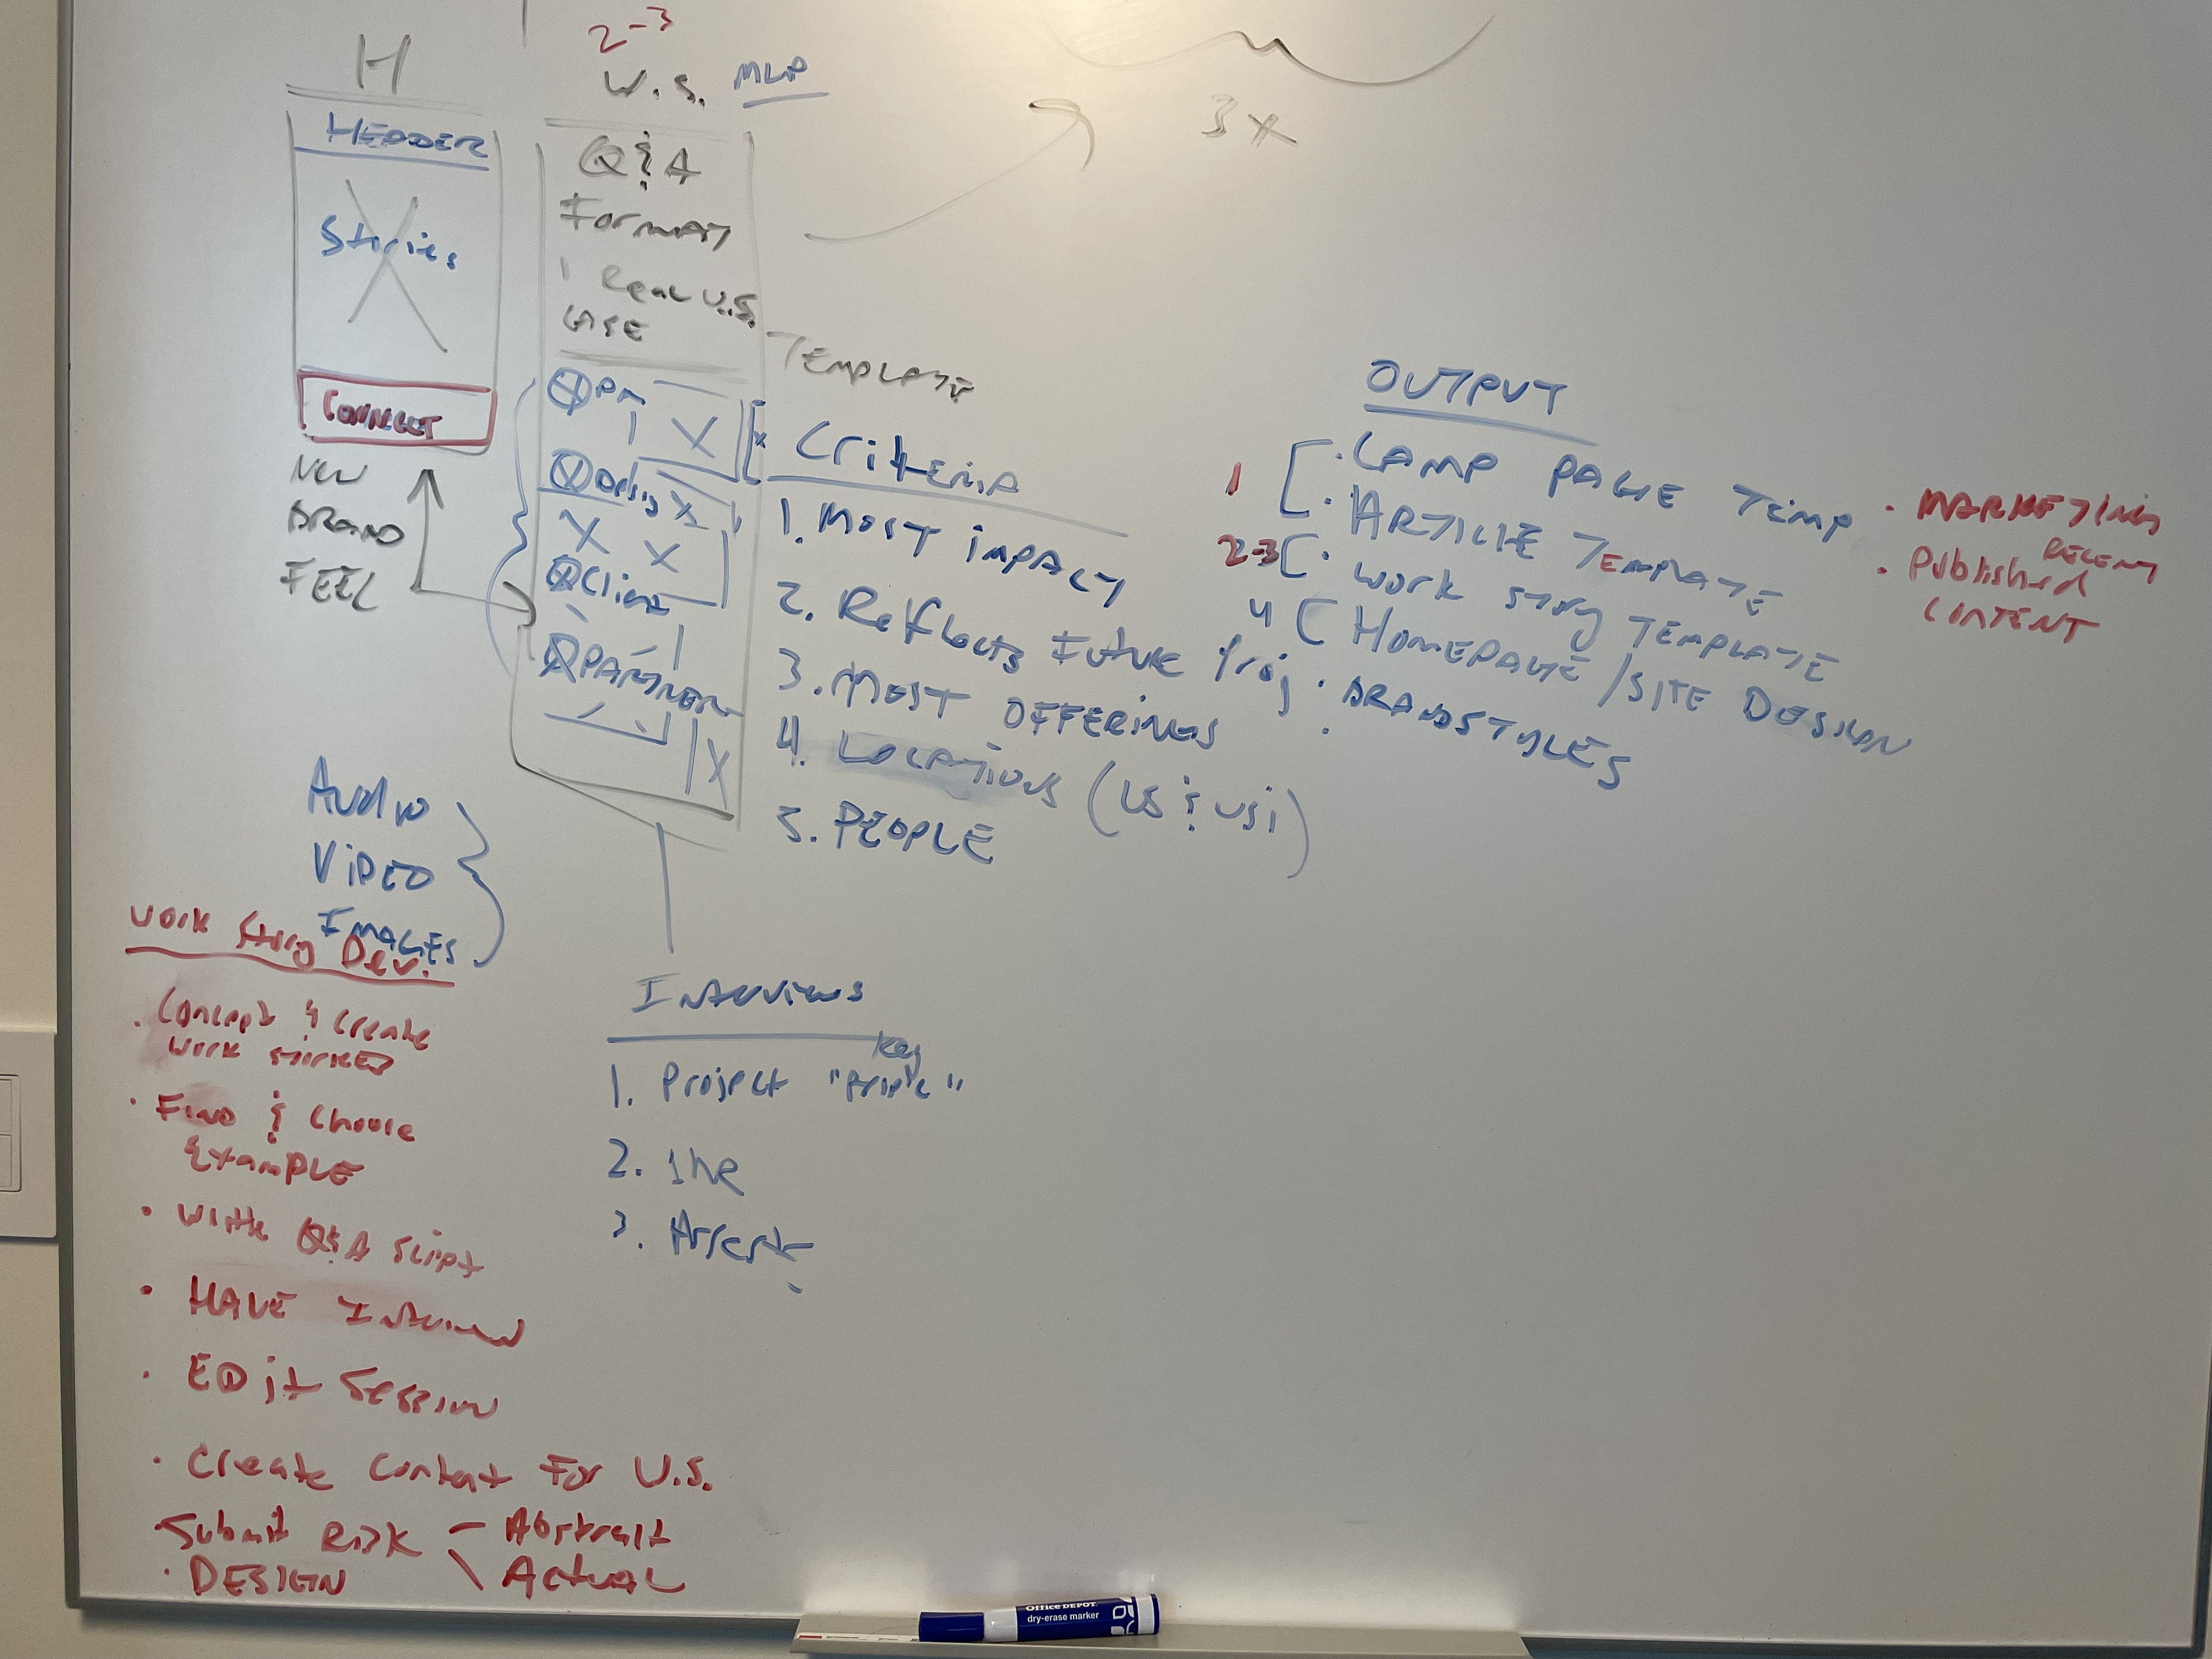 H
HEADER
Stories
CONNECT
NEW
BRAND
FEEL
2-3
W.S. MLP
Q & A
Format
1 Real W.S.
USE
TEMPLATE
Q PM
Q Design
Q Client
Q PARTNER
3x
Criteria
1. MOST impact
2. Reflects Future Proj
3. MOST OFFERINGS
4. LOCATIONS (US & USI)
5. PEOPLE
OUTPUT
1 [ · CAMP PAGE Temp
· ARTICLE TEMPLATE
2-3 [ · work story TEMPLATE
4 [ HOMEPAGE / SITE DESIGN
· BRANDSTYLES
·
· MARKETING
· Published RECENT
CONTENT
Audio
VIDEO
IMAGES
work Story Dev.
· Concept & Create
work stories
· FIND & Choose
EXAMPLE
· Write Q&A Script
· HAVE Interview
· EDit Session
· Create Content For W.S.
· Submit Risk – Abstract
\ ACTUAL
· DESIGN
Interviews
Key
1. Project "People"
2.
3.
Office DEPOT
dry-erase marker